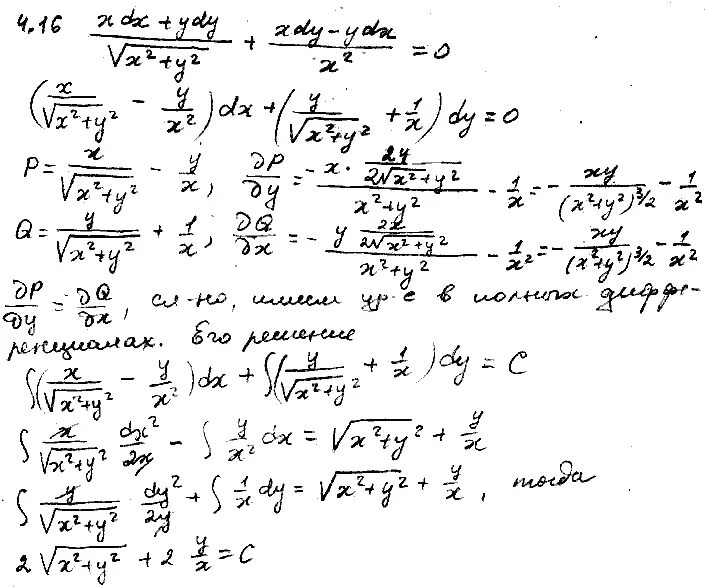 4.16 (x dx + y dy)/√(x²+y²) + (x dy − y dx)/x² = 0
(x/√(x²+y²) − y/x²) dx + (y/√(x²+y²) + 1/x) dy = 0
P = x/√(x²+y²) − y/x, ∂P/∂y = (−x · 2y/(2√(x²+y²)))/(x²+y²) − 1/x = − xy/(x²+y²)^(3/2) − 1/x²
Q = y/√(x²+y²) + 1/x; ∂Q/∂x = − (y 2x/(2√(x²+y²)))/(x²+y²) − 1/x² = − xy/(x²+y²)^(3/2) − 1/x²
∂P/∂y = ∂Q/∂x, сл-но, имеем ур-е в полных диффе-
ренциалах. Его решение
∫(x/√(x²+y²) − y/x²) dx + ∫(y/√(x²+y²) + 1/x) dy = C
∫ x/√(x²+y²) dx²/2x − ∫ y/x² dx = √(x²+y²) + y/x
∫ y/√(x²+y²) dy²/2y + ∫ 1/x dy = √(x²+y²) + y/x, тогда
2√(x²+y²) + 2 y/x = C